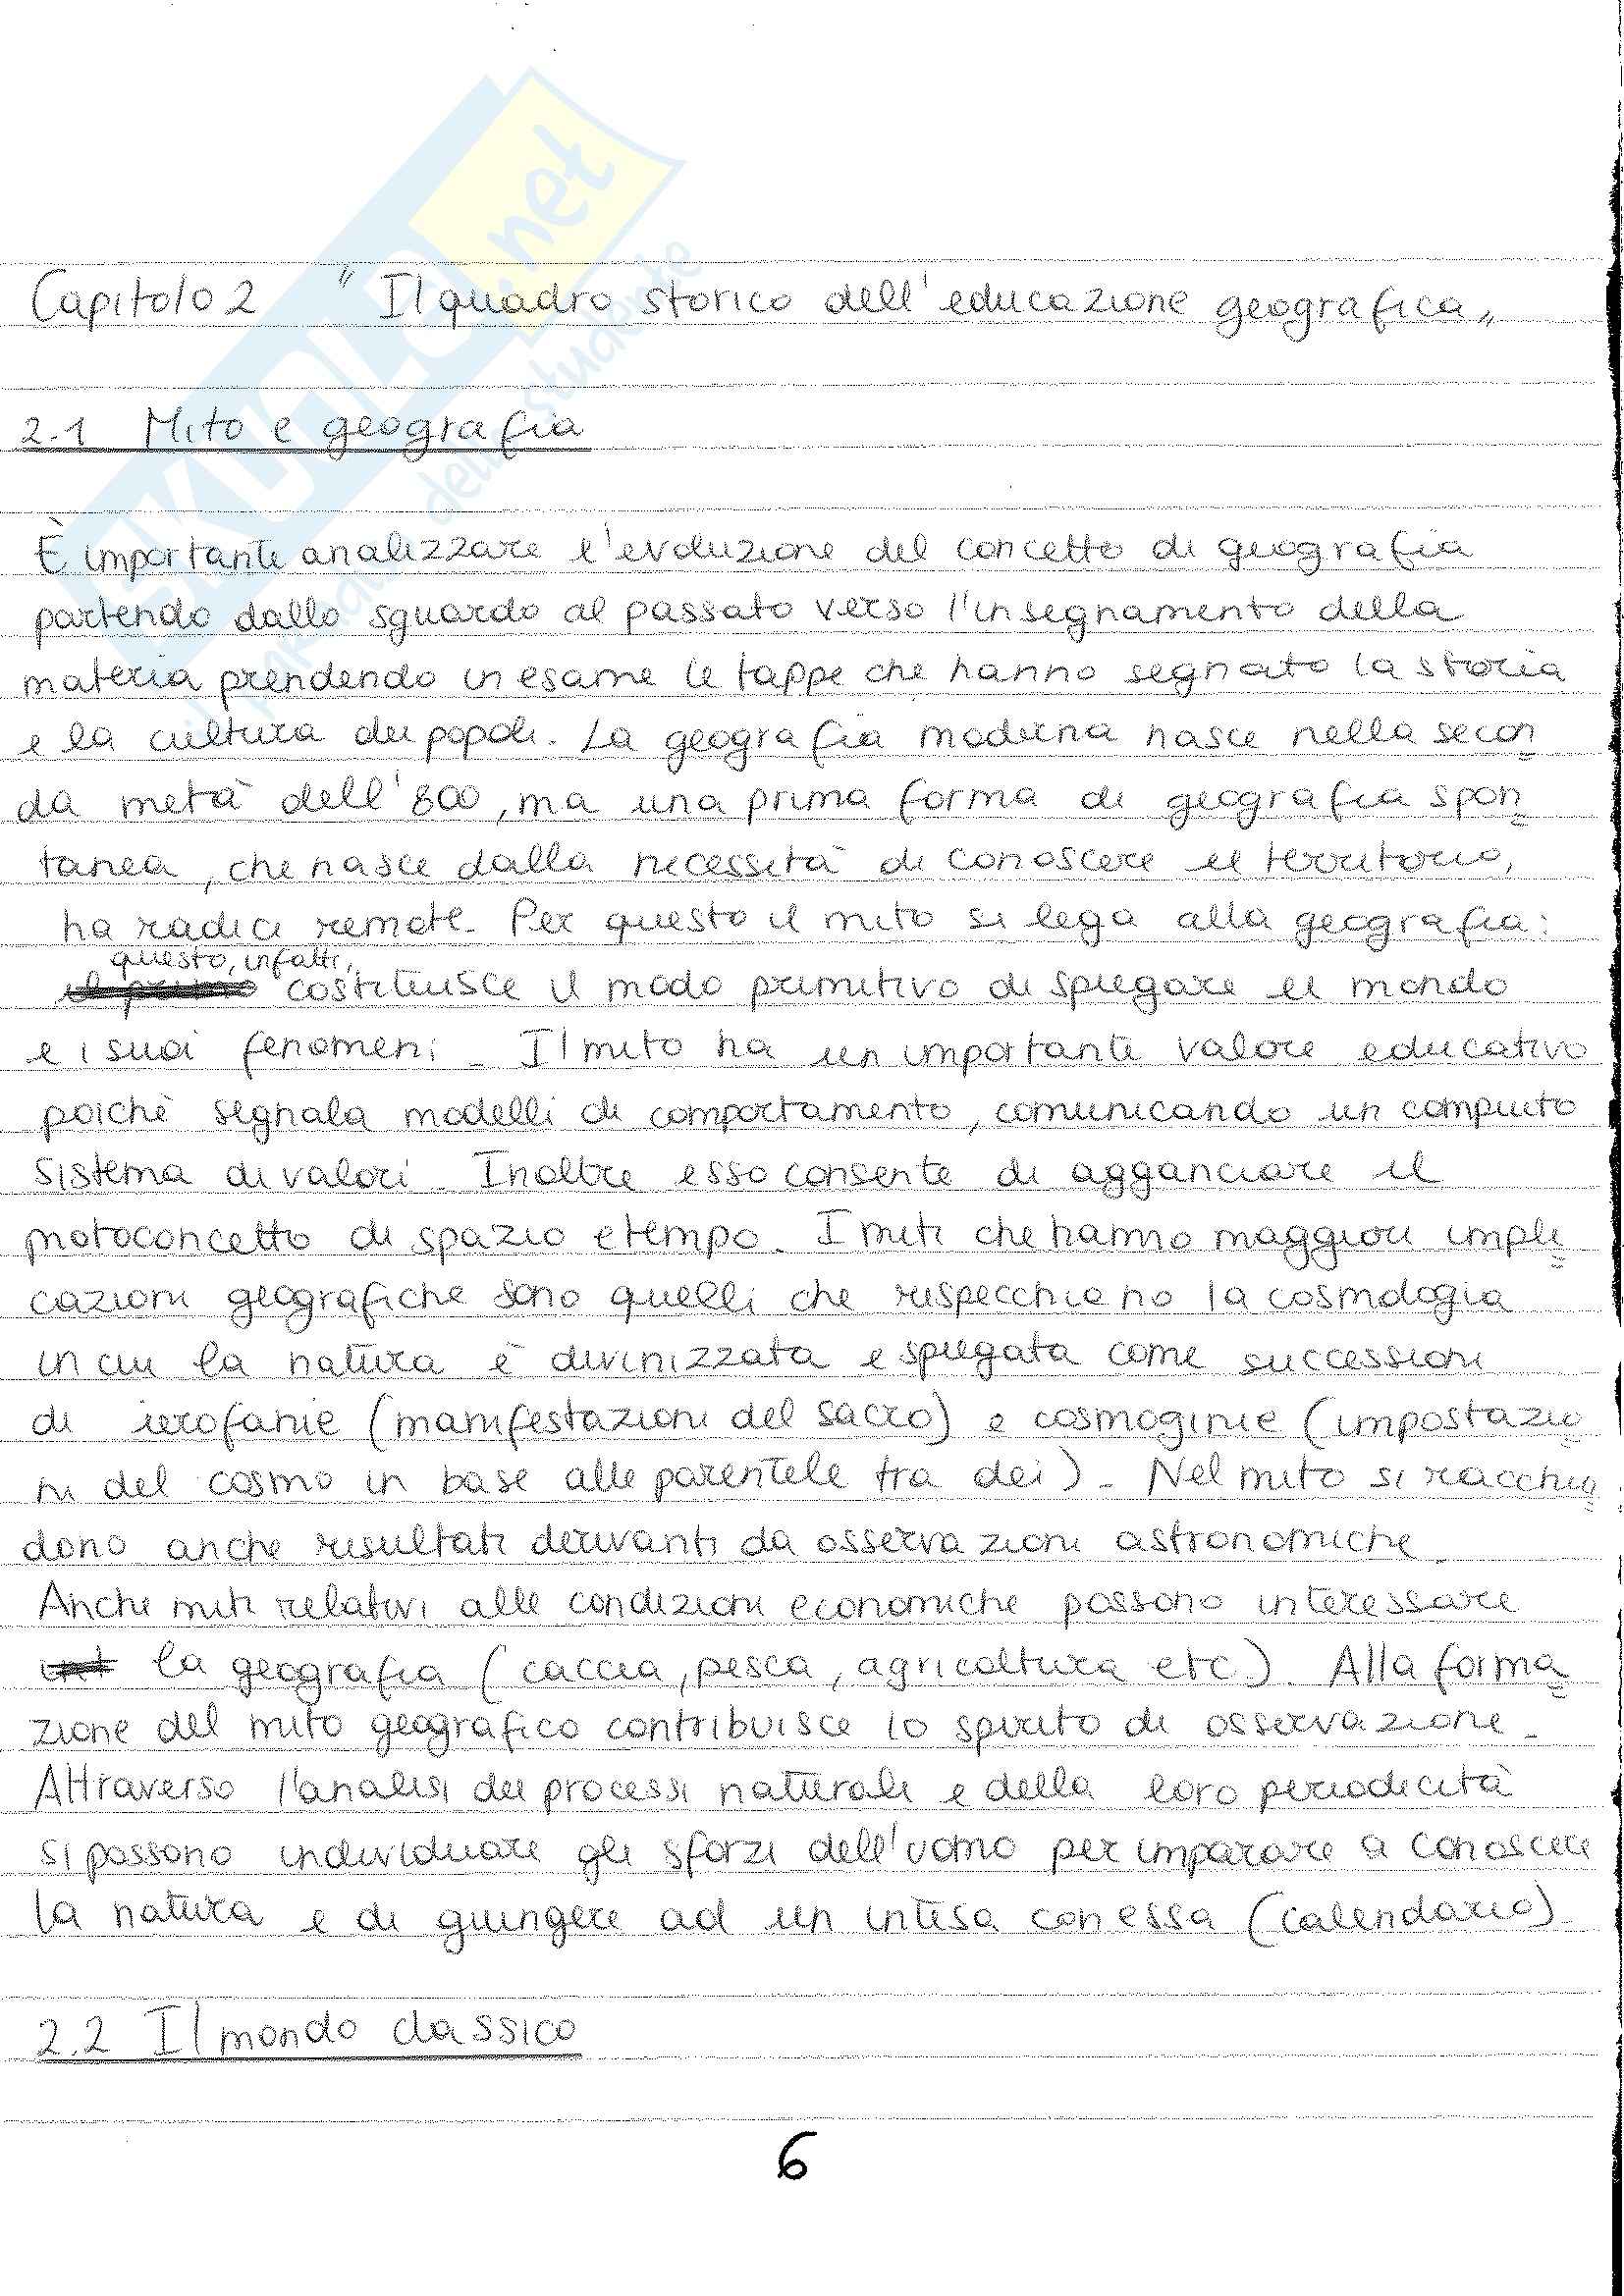 Capitolo 2 " Il quadro storico dell'educazione geografica "
2.1 Mito e geografia
È importante analizzare l'evoluzione del concetto di geografia
partendo dallo sguardo al passato verso l'insegnamento della
materia prendendo in esame le tappe che hanno segnato la storia
e la cultura dei popoli. La geografia moderna nasce nella secon
da metà dell'800, ma una prima forma di geografia spon
tanea, che nasce dalla necessità di conoscere il territorio,
ha radici remote. Per questo il mito si lega alla geografia:
questo, infatti,
costituisce il modo primitivo di spiegare il mondo
e i suoi fenomeni. Il mito ha un importante valore educativo
poichè segnala modelli di comportamento, comunicando un compiuto
sistema di valori. Inoltre esso consente di agganciare il
protoconcetto di spazio e tempo. I miti che hanno maggiori impli
cazioni geografiche sono quelli che rispecchiano la cosmologia
in cui la natura è divinizzata e spiegata come successioni
di ierofanie (manifestazioni del sacro) e cosmoginie (impostazio
ni del cosmo in base alle parentele tra dei). Nel mito si racchiu
dono anche risultati derivanti da osservazioni astronomiche.
Anche miti relativi alle condizioni economiche possono interessare
la geografia (caccia, pesca, agricoltura etc.). Alla forma
zione del mito geografico contribuisce lo spirito di osservazione.
Attraverso l'analisi dei processi naturali e della loro periodicità
si possono individuare gli sforzi dell'uomo per imparare a conoscere
la natura e di giungere ad un intesa con essa (calendario).
2.2 Il mondo classico
6
SKUOLA.net
il portale dello studente